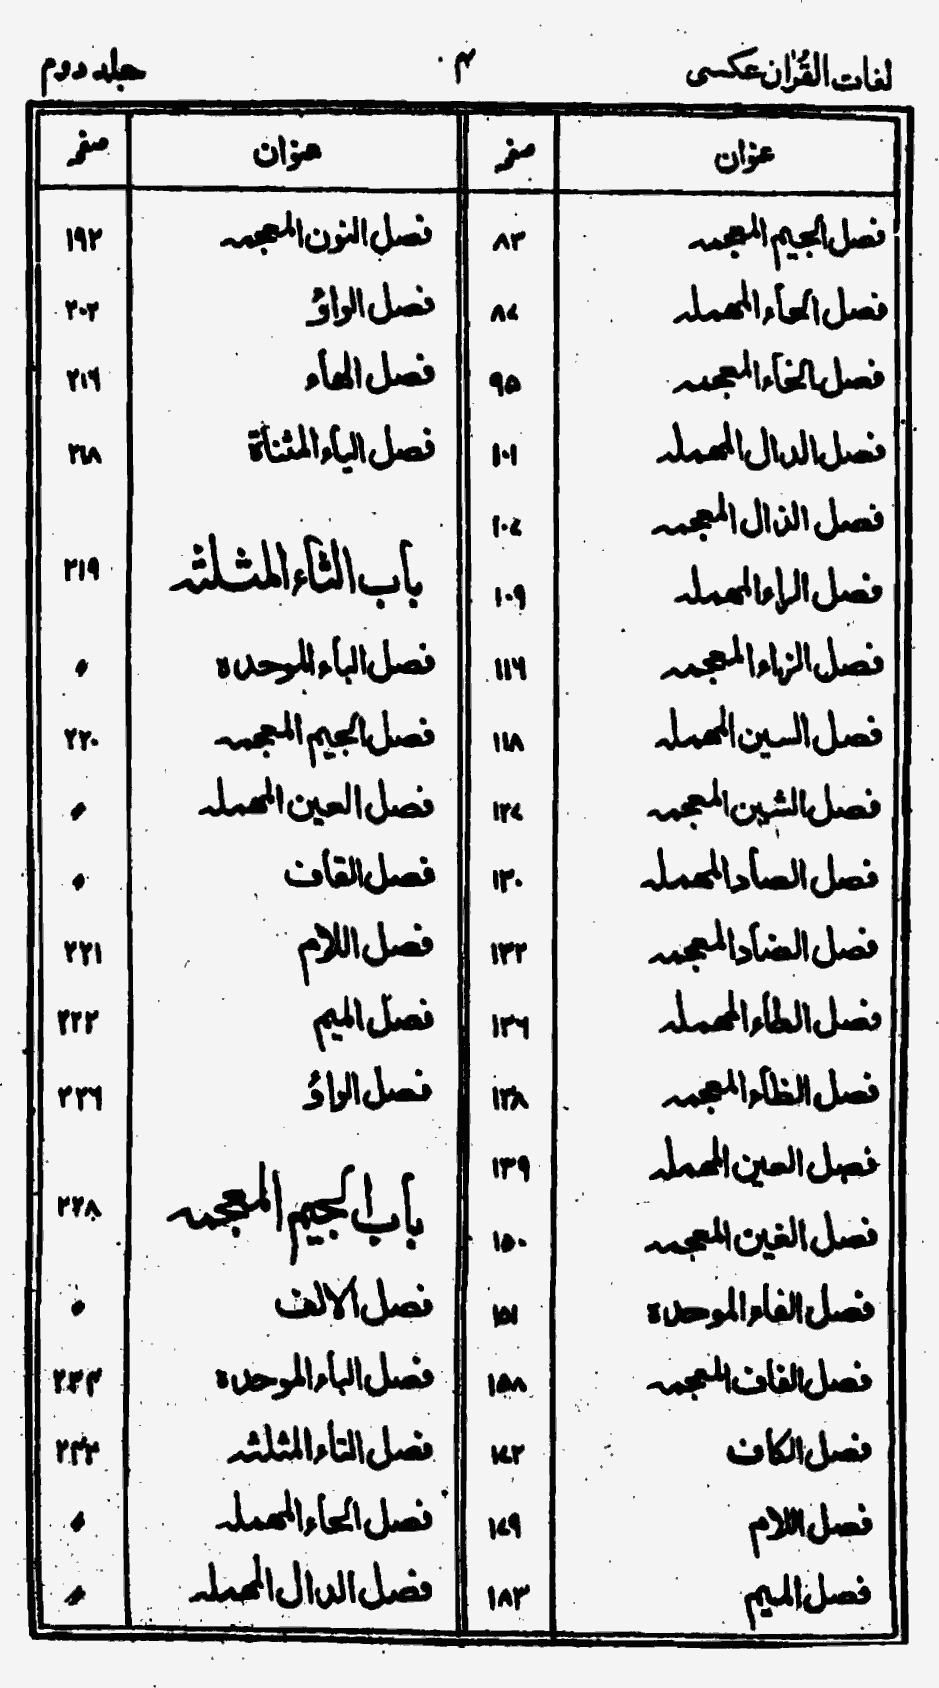 لغات القرآن عکسی ۴ جلد دوم
عنوان صفحہ
فصل الجیم المعجمہ ۸۳
فصل الحآء المھملہ ۸۷
فصل الخآء المعجمہ ۹۵
فصل الدال المھملہ ۱۰۱
فصل الذال المعجمہ ۱۰۷
فصل الراء المھملہ ۱۰۹
فصل الزاء المعجمہ ۱۱۶
فصل السین المھملہ ۱۱۸
فصل الشین المعجمہ ۱۲۷
فصل الصآد المھملہ ۱۳۰
فصل الضآد المعجمہ ۱۳۲
فصل الطآء المھملہ ۱۳۶
فصل الظآء المعجمہ ۱۳۸
فصل العین المھملہ ۱۳۹
فصل الغین المعجمہ ۱۵۰
فصل الفآء الموحدہ ۱۵۱
فصل القاف المعجمہ ۱۵۸
فصل الکاف ۱۷۲
فصل اللام ۱۷۹
فصل المیم ۱۸۳
عنوان صفحہ
فصل النون المعجمہ ۱۹۲
فصل الواؤ ۲۰۲
فصل الھآء ۲۱۶
فصل الیآء المثناۃ ۲۱۸
باب الثآء المثلثہ ۲۱۹
فصل البآء الموحدہ ״
فصل الجیم المعجمہ ۲۲۰
فصل العین المھملہ ״
فصل القآف ״
فصل اللام ۲۲۱
فصل المیم ۲۲۲
فصل الواؤ ۲۲۶
باب الجیم المعجمہ ۲۲۸
فصل الالف ״
فصل البآء الموحدہ
فصل الثآء المثلثہ
فصل الحآء المھملہ ״
فصل الدال المھملہ ״